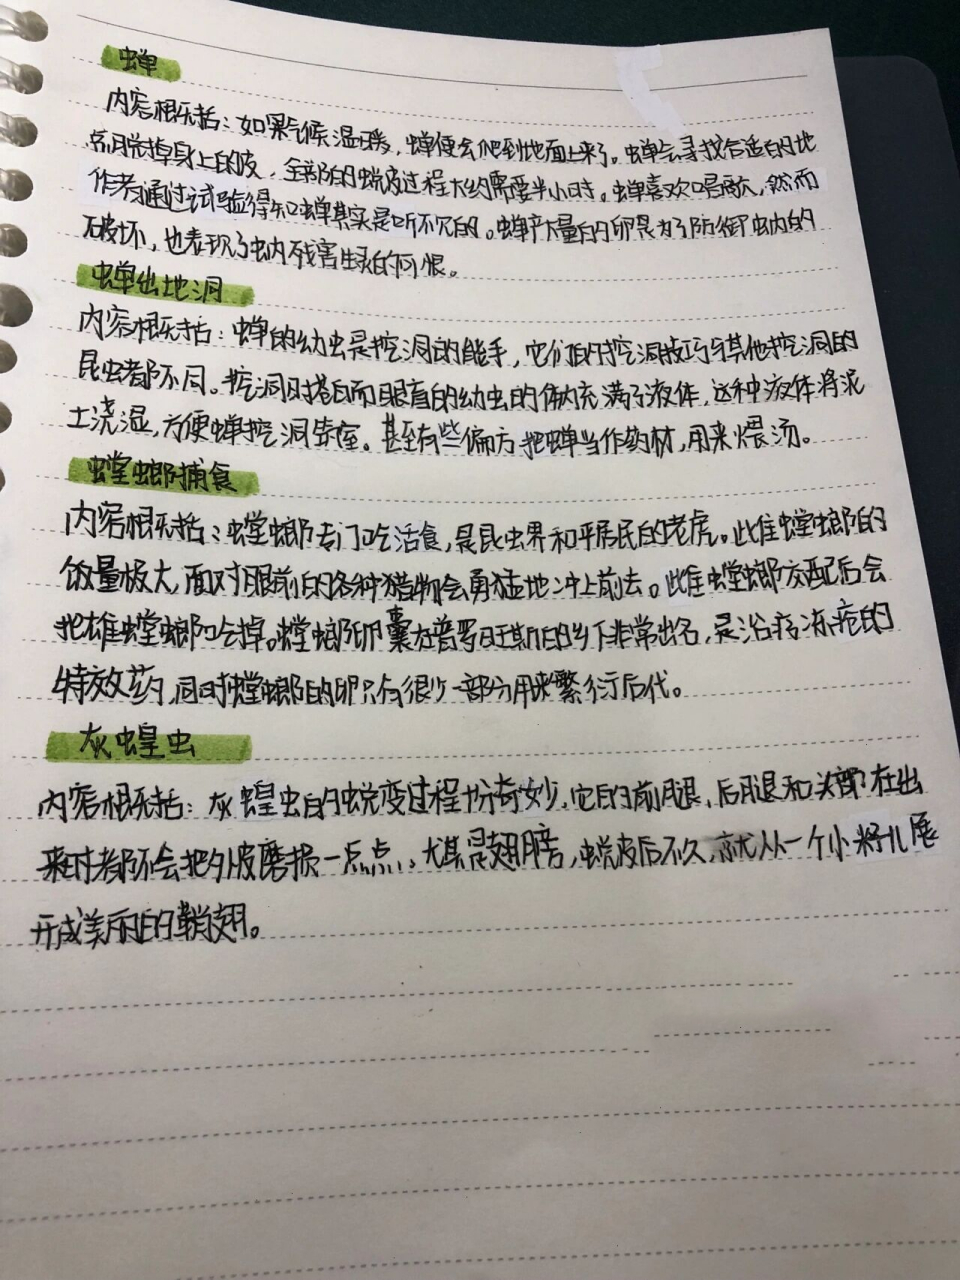 蝉
内容概括：如果气候温暖，蝉便会爬到地面上来了。蝉会寻找合适的地
点脱掉身上的皮，全部的蜕皮过程大约需要半小时。蝉喜欢唱歌，然而
作者通过试验得知蝉其实是听不见的。蝉产大量的卵是为了防御虫内的
破坏，也表现了虫内残害生灵的可恨。
蝉出地洞
内容概括：蝉的幼虫是挖洞的能手，它们的挖洞技巧与其他挖洞的
昆虫都不同。挖洞时苍白而眼盲的幼虫的体内充满了液体，这种液体将泥
土浇湿，方便蝉挖洞筑室。甚至有些偏方把蝉当作药材，用来煨汤。
螳螂捕食
内容概括：螳螂专门吃活食，是昆虫界和平居民的老虎。此雌螳螂的
饭量极大，面对眼前的各种猎物会勇猛地冲上前去。此雌螳螂交配后会
把雄螳螂吃掉。螳螂卵囊在普罗旺斯的乡下非常出名，是治疗冻疮的
特效药，同时螳螂的卵只有很少一部分用来繁衍后代。
灰蝗虫
内容概括：灰蝗虫的蜕变过程十分奇妙，它的前腿、后腿和头部在出
来时都不会把外皮磨损一点点，尤其是翅膀，蜕皮后不久，就从一个小籽儿展
开成美丽的鞘翅。